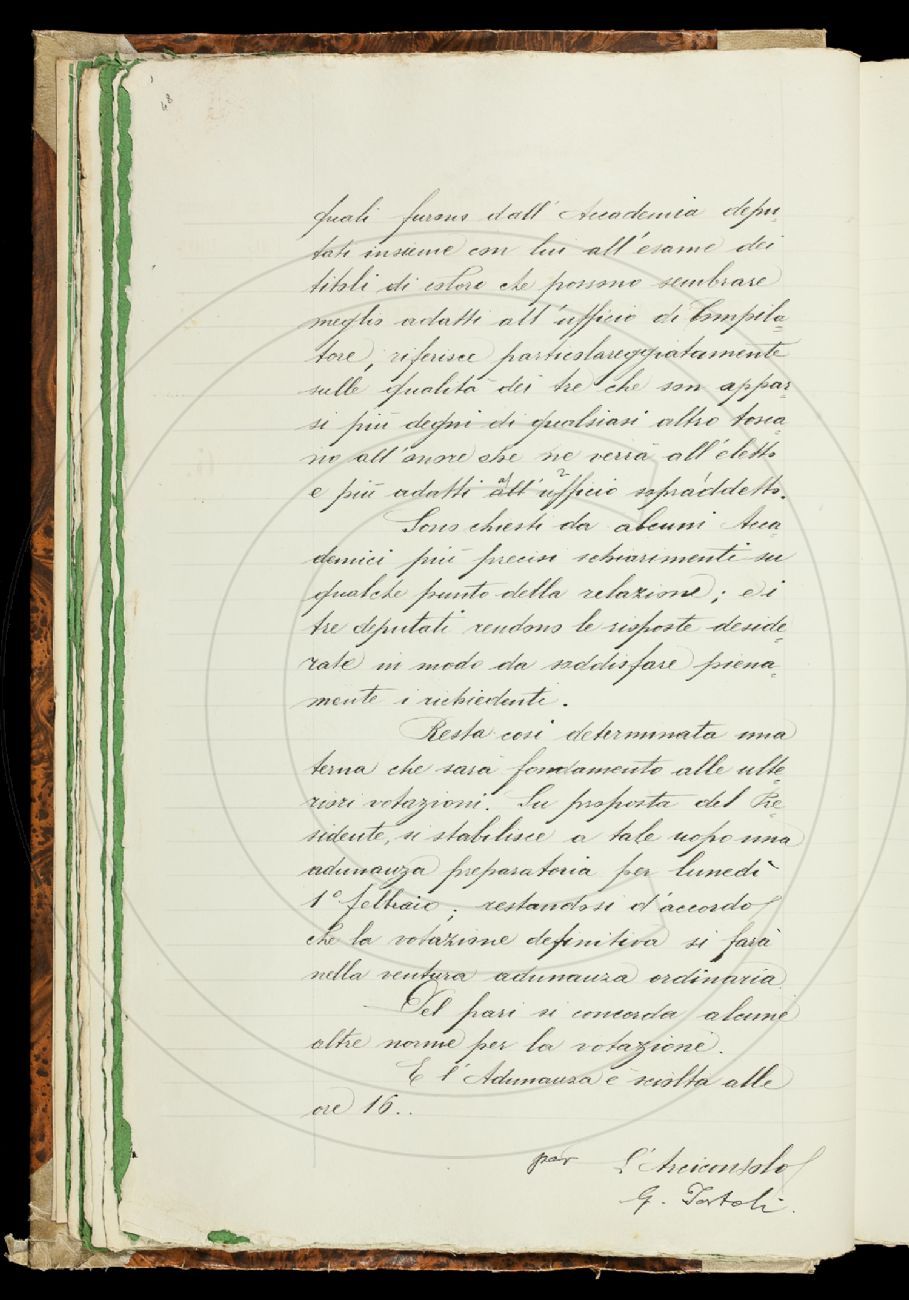 48
quali furono dall'Accademia depu=
tati insieme con lui all'esame dei
titoli di coloro che possono sembrare
meglio adatti all'ufficio di Compila=
tore, riferisce particolareggiatamente
sulle qualità dei tre che son appar=
si più degni di qualsiasi altro tosca=
no all'onore che ne verrà all'eletto
e più adatti all'ufficio sopraddetto.
Sono chiesti da alcuni Acca=
demici più precisi schiarimenti su
qualche punto della relazione; e i
tre deputati rendono le risposte deside=
rate in modo da soddisfare piena=
mente i richiedenti.
Resta così determinata una
terna che sarà fondamento alle ulte=
riori votazioni. Su proposta del Pre=
sidente, si stabilisce a tale uopo una
adunanza preparatoria per lunedì
1° febbraio; restandosi d'accordo
che la votazione definitiva si farà
nella ventura adunanza ordinaria.
Del pari si concorda alcune
altre norme per la votazione.
E l'Adunanza è sciolta alle
ore 16..
per L'Arciconsolo
G. Tortoli.